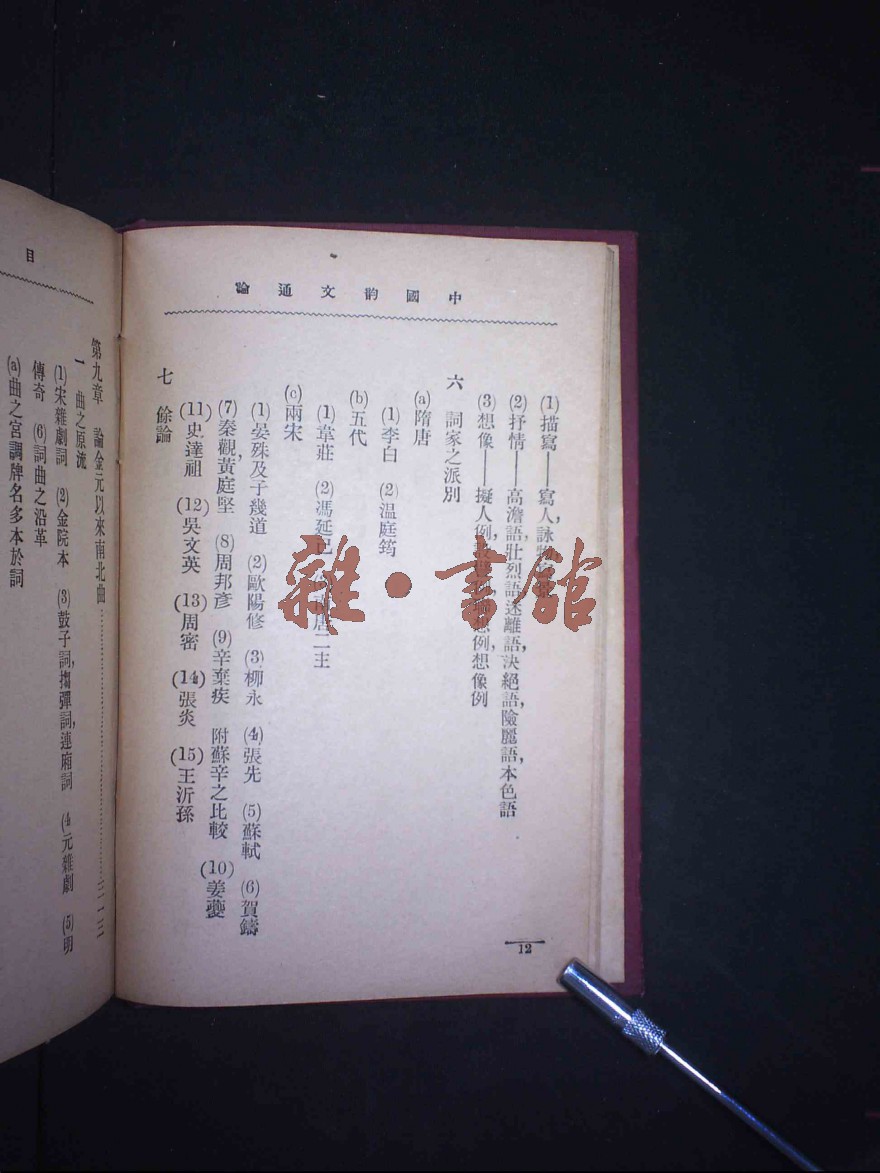 中國韵文通論
(1)描寫——寫人,詠物
(2)抒情——高澹語,壯烈語,迷離語,決絕語,險麗語,本色語
(3)想像——擬人例,想例,想像例
六 詞家之派別
(a)隋唐
(1)李白 (2)温庭筠
(b)五代
(1)韋莊 (2)馮延巳 唐二主
(c)兩宋
(1)晏殊及子幾道 (2)歐陽修 (3)柳永 (4)張先 (5)蘇軾 (6)賀鑄
(7)秦觀,黃庭堅 (8)周邦彥 (9)辛棄疾 附蘇辛之比較 (10)姜夔
(11)史達祖 (12)吳文英 (13)周密 (14)張炎 (15)王沂孫
七 餘論
12
目
第九章 論金元以來南北曲
一 曲之原流
(1)宋雜劇詞 (2)金院本 (3)鼓子詞,搊彈詞,連廂詞 (4元雜劇 (5)明
傳奇 (6)詞曲之沿革
(a)曲之宮調牌名多本於詞
雜·書館